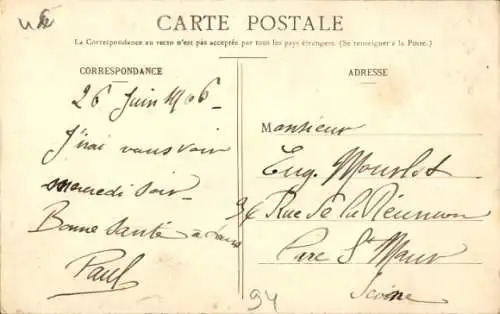 CARTE POSTALE
La Correspondance au verso n'est pas acceptée par tous les pays étrangers. (Se renseigner à la Poste.)
CORRESPONDANCE
26 Juin 1906
J'irai vous voir
mercredi soir
Bonne Santé à tous
Paul
ADRESSE
Monsieur
Eug. Mourlot
34 Rue de la Réunion
Parc St Maur
Seine
94